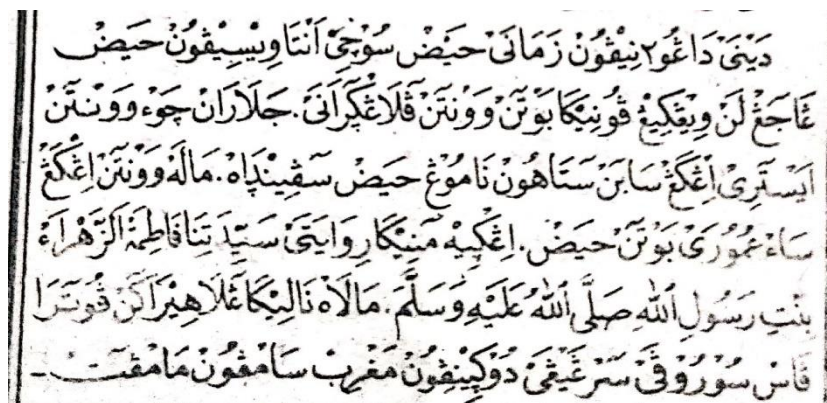 دَيْنَيْ دَاغَو٢ نِيڤُوْن زَمَانَيْ حَيْضْ سُوْچِيْ اَنْتَاوِيْسِيْڤُوْن حَيْضْ
غَاجَڠْ لَنْ وِيڠكِيڠْ ڤُونِيْكَا بَوْتَنْ وَوَنْتَنْ ڤَلَاڠْڮَرَانَيْ. جَلَارَانْ چَوْءْ وَوَنْتَنْ
اَيْسْتَرِيْ اِڠْكَڠْ سَابَنْ سَتَاهُوْن نَامُوْڠْ حَيْضْ سَڤِيْنْدَاهْ. مَالَهْ وَوَنْتَنْ اِڠْكَڠْ
سَاءْ عُمُوْرَيْ بَوْتَنْ حَيْضْ. اِڠْكِيهْ مَنِيْكَا رِوَايَتَيْ سَيِّدَتِنَا فَاطِمَةْ اَلزَّهْرَاءْ
بِنْتِ رَسُوْلِ اللّٰهِ صَلَّى اللّٰهُ عَلَيْهِ وَسَلَّمَ. مَالَاهْ نَالِيْكَا ڠَلَاهِيْرَاكَنْ ڤُوتْرَا
ڤَاسْ سُوْرُوْڤَيْ سَرْڠَيْڠَيْ دَوْكِيْنِڤُوْن مَغْرِبْ سَامْڤُوْن مَامْڤَتْ -